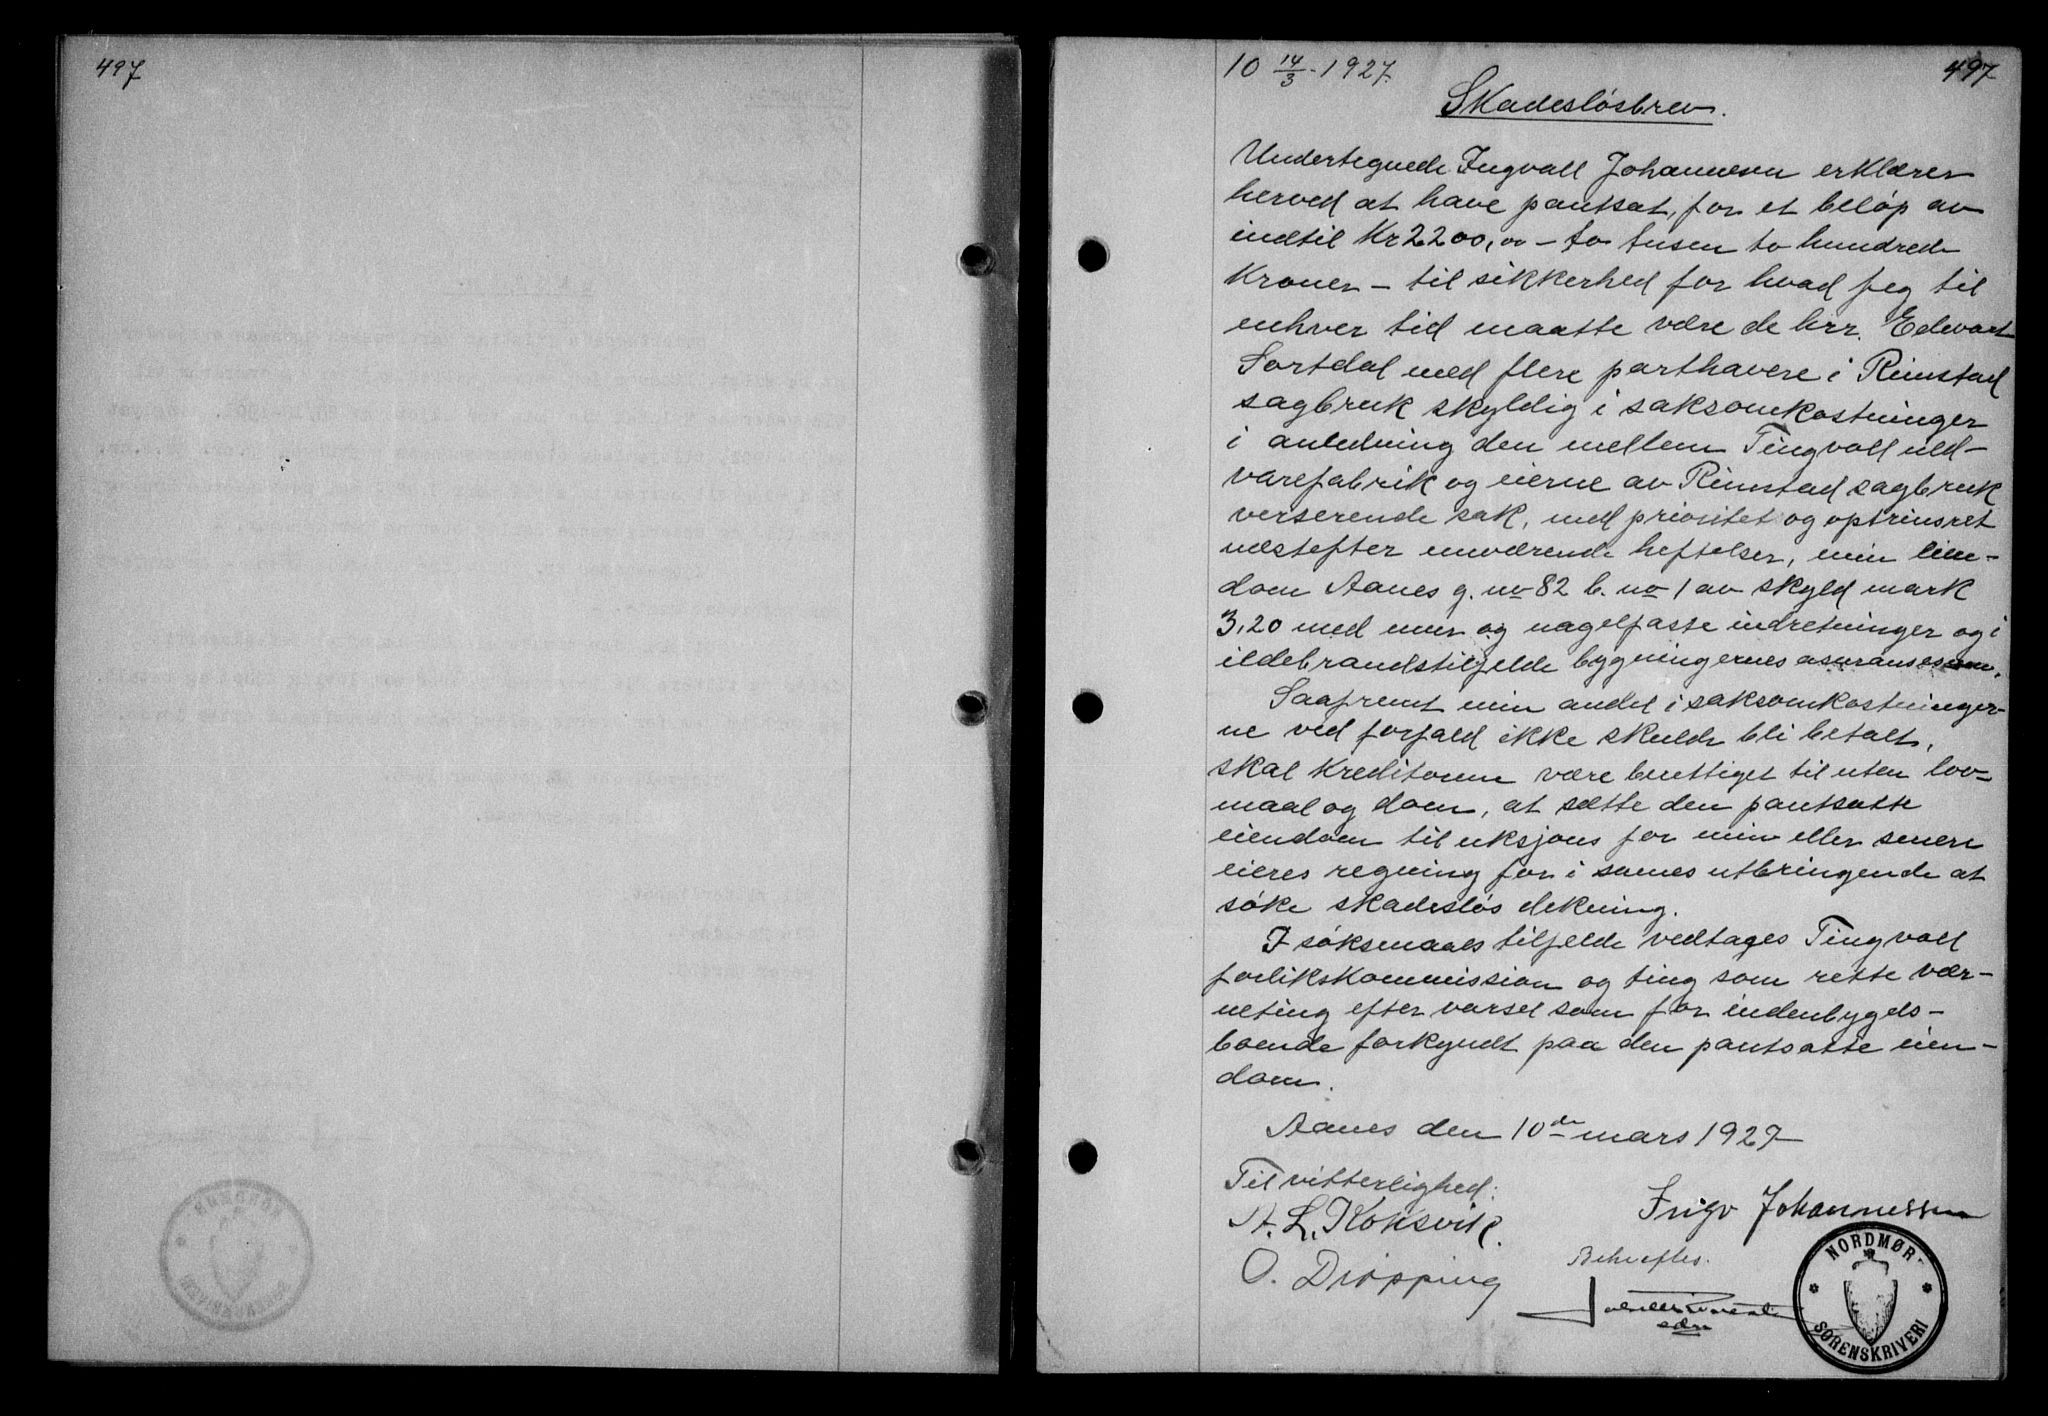 497
10 14/3-1927. 497
Skadesløsbrev.
Undertegnede Ingvall Johannesen erklærer
herved at have pantsat, for et beløp av
indtil Kr 2200,00 – to tusen to hundrede
Kroner – til sikkerhed for hvad jeg til
enhver tid maatte være de hrr. Edvart
Sortdal med flere parthavere i Rimstad
sagbruk skyldig i saksomkostninger
i anledning den mellem Tingvoll uld-
varefabrik og eierne av Rimstad sagbruk
verserende sak, med prioritet og optrinsret
næstefter nuværende heftelser, min eien-
dom Aanes g. no 82 b. no 1 av skyld mark
3,20 med mur og nagelfaste indretninger og i
ildebrandstilfelde bygningernes assuransesum.
Saafremt min andel i saksomkostninger-
ne ved forfald ikke skulde bli betalt,
skal kreditorene være berettiget til uten lov-
maal og dom, at sætte den pantsatte
eiendom til uksjons for min eller senere
eieres regning for i sames utbringende at
søke skadesløs dekning.
I søksmaals tilfelde vedtages Tingvoll
forlikskommission og ting som rette vær-
neting efter varsel som for indenbygds-
boende forkyndt paa den pantsatte eien-
dom.
Aanes den 10de mars 1927
Til vitterlighed:
A. L. Koksvik.
O. Dropping
Ingv Johannessen
Bekreftes.
NORDMØR
SØRENSKRIVERI